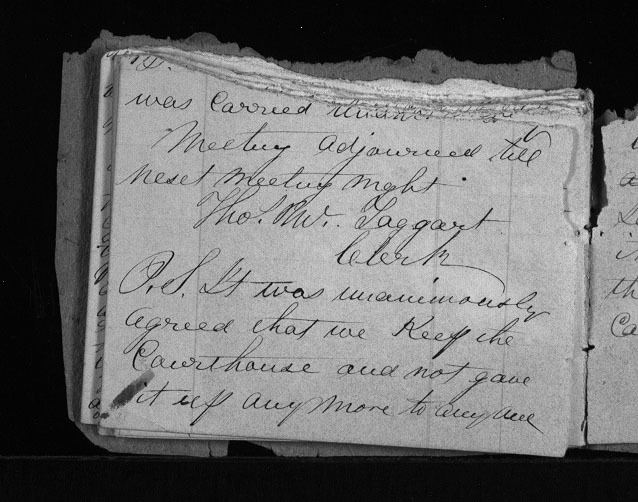 was Carried
Meeting adjourned till
next meeting night
Tho. Mc. Taggart
Clerk
P.S. It was unanimously
agreed that we Keep the
Courthouse and not gave
it up any more to any one